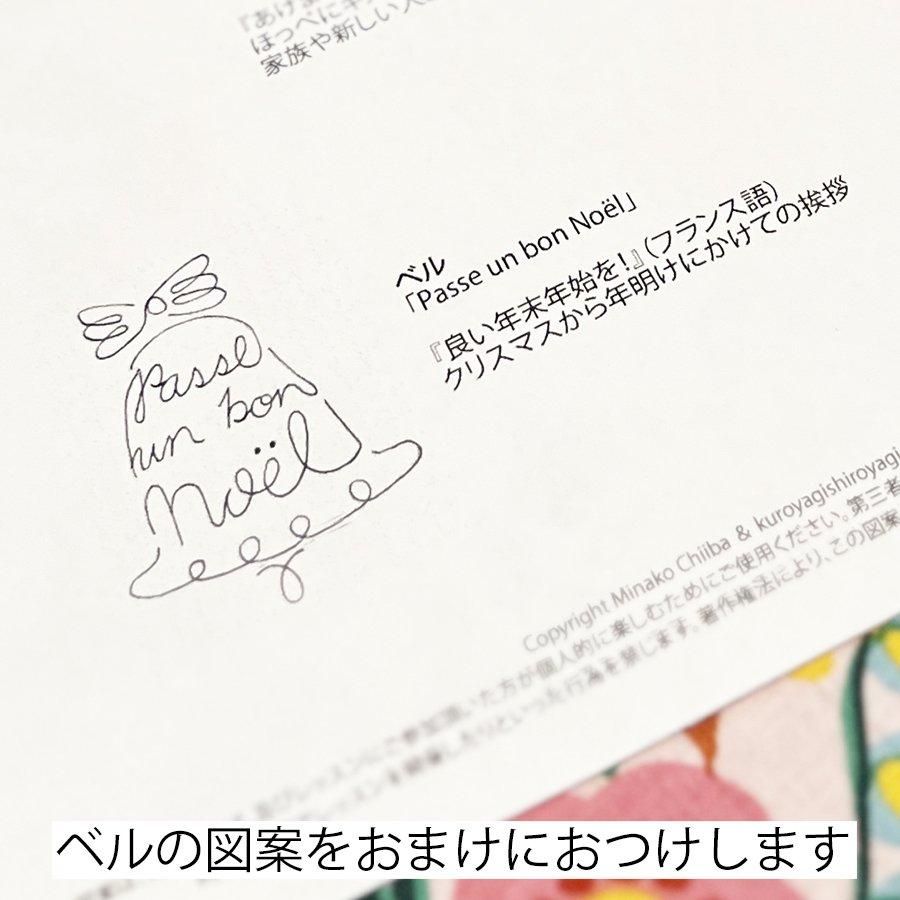 ほっぺにキ
家族や新しい人
ベル
「Passe un bon Noël」
『良い年末年始を！』(フランス語)
クリスマスから年明けにかけての挨拶
Passe
un bon
Noël
Copyright Minako Chiiba & kuroyagishiroyagi
個人的に楽しむためにご使用ください。第三者
著作権法により、この図案
ベルの図案をおまけにおつけします